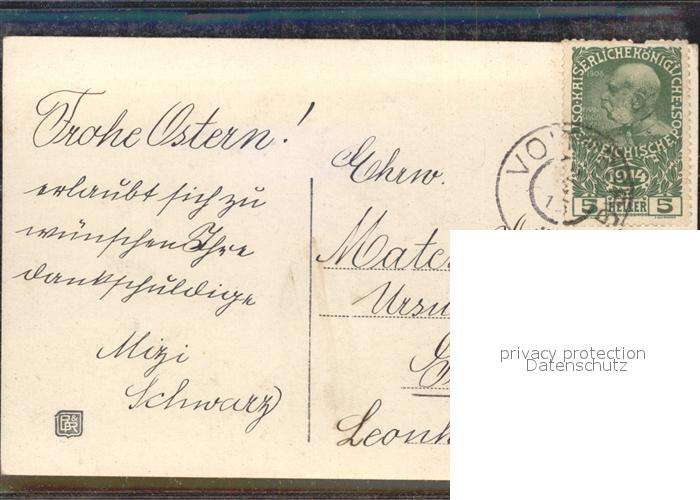 Frohe Ostern!
erlaubt sich zu
wünschen Ihre
dankschuldige
Mizi
Schwarz
Ehrw.
Mate
Ursu
Leon
KAISERLICHE KÖNIGLICHE
REICHISCHE
1914
5 HELLER 5
VOI
privacy protection
Datenschutz